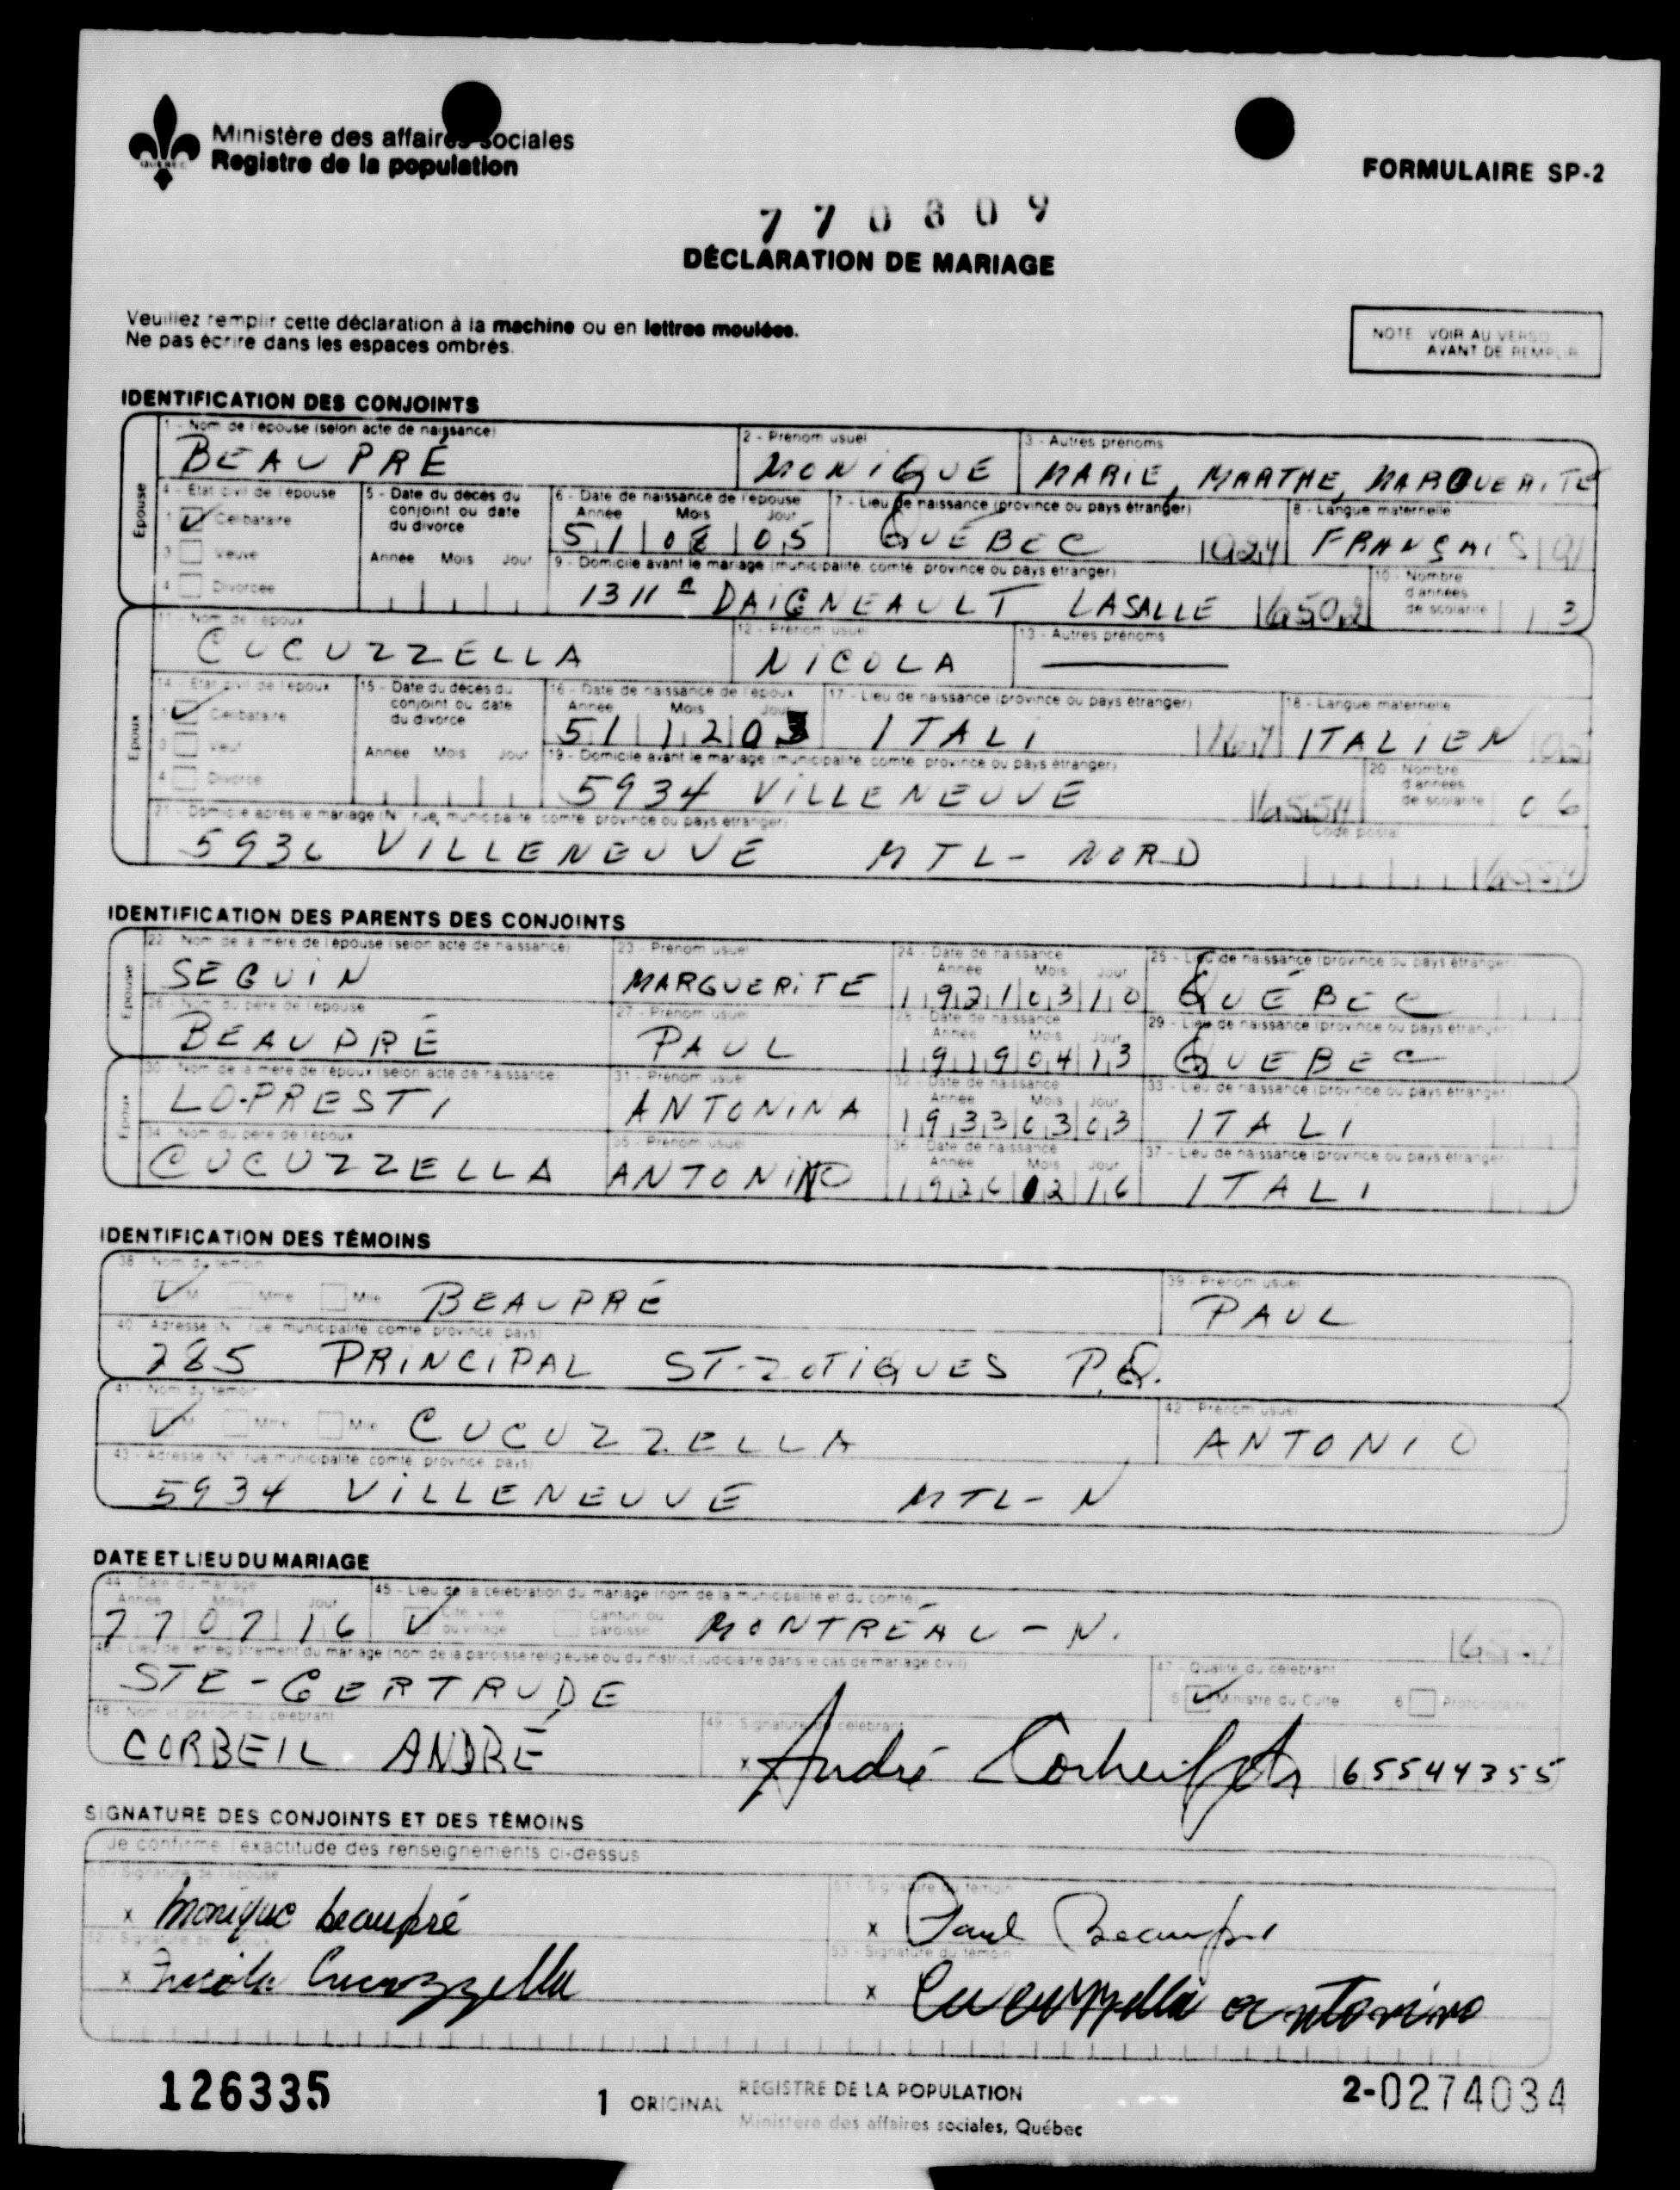 Ministère des affaires sociales
Registre de la population
QUÉBEC
FORMULAIRE SP-2
770809
DÉCLARATION DE MARIAGE
Veuillez remplir cette déclaration à la machine ou en lettres moulées.
Ne pas écrire dans les espaces ombrés.
NOTE VOIR AU VERSO
AVANT DE REMPLIR
IDENTIFICATION DES CONJOINTS
Épouse
1 - Nom de l'épouse (selon acte de naissance) 2 - Prénom usuel 3 - Autres prénoms
BEAUPRÉ MONIQUE MARIE, MARTHE, MARGUERITE
4 - État civil de l'épouse 5 - Date du décès du conjoint ou date du divorce 6 - Date de naissance de l'épouse 7 - Lieu de naissance (province ou pays étranger) 8 - Langue maternelle
1 Célibataire Année Mois Jour
51 08 05 QUÉBEC 924 FRANÇAIS 01
3 Veuve Année Mois Jour 9 - Domicile avant le mariage (municipalité, comté, province ou pays étranger) 10 - Nombre d'années de scolarité
4 Divorcée 1311 A DAIGNEAULT LASALLE 6502 13
Époux
11 - Nom de l'époux 12 - Prénom usuel 13 - Autres prénoms
CUCUZZELLA NICOLA
14 - État civil de l'époux 15 - Date du décès du conjoint ou date du divorce 16 - Date de naissance de l'époux 17 - Lieu de naissance (province ou pays étranger) 18 - Langue maternelle
1 Célibataire Année Mois Jour
51 12 03 ITALI ITALIEN
3 Veuf Année Mois Jour 19 - Domicile avant le mariage (municipalité, comté, province ou pays étranger) 20 - Nombre d'années de scolarité
4 Divorcé 5934 VILLENEUVE 6554 06
21 - Domicile après le mariage (N°, rue, municipalité, comté, province ou pays étranger) Code postal
5936 VILLENEUVE MTL-NORD 6554
IDENTIFICATION DES PARENTS DES CONJOINTS
Épouse
22 - Nom de la mère de l'épouse (selon acte de naissance) 23 - Prénom usuel 24 - Date de naissance 25 - Lieu de naissance (province ou pays étranger)
Année Mois Jour
SEGUIN MARGUERITE 1921 03 10 QUÉBEC
26 - Nom du père de l'épouse 27 - Prénom usuel 28 - Date de naissance 29 - Lieu de naissance (province ou pays étranger)
Année Mois Jour
BEAUPRÉ PAUL 1919 04 13 QUEBEC
Époux
30 - Nom de la mère de l'époux (selon acte de naissance) 31 - Prénom usuel 32 - Date de naissance 33 - Lieu de naissance (province ou pays étranger)
Année Mois Jour
LO-PRESTI ANTONINA 1933 03 03 ITALI
34 - Nom du père de l'époux 35 - Prénom usuel 36 - Date de naissance 37 - Lieu de naissance (province ou pays étranger)
Année Mois Jour
CUCUZZELLA ANTONINO 1926 12 16 ITALI
IDENTIFICATION DES TÉMOINS
38 - Nom du témoin 39 - Prénom usuel
M Mme Mlle BEAUPRÉ PAUL
40 - Adresse (N°, rue, municipalité, comté, province, pays)
285 PRINCIPAL ST-ZOTIQUES P.Q.
41 - Nom du témoin 42 - Prénom usuel
M Mme Mlle CUCUZZELLA ANTONIO
43 - Adresse (N°, rue, municipalité, comté, province, pays)
5934 VILLENEUVE MTL-N
DATE ET LIEU DU MARIAGE
44 - Date du mariage 45 - Lieu de la célébration du mariage (nom de la municipalité et du comté)
Année Mois Jour Cité, ville ou village Canton ou paroisse
77 07 16 MONTRÉAL-N.
46 - Lieu de l'enregistrement du mariage (nom de la paroisse religieuse ou du district judiciaire dans le cas de mariage civil) 47 - Qualité du célébrant
STE-GERTRUDE 5 Ministre du Culte 6 Protonotaire
48 - Nom et prénom du célébrant 49 - Signature du célébrant
CORBEIL ANDRÉ x André Corbeil 65544355
SIGNATURE DES CONJOINTS ET DES TÉMOINS
Je confirme l'exactitude des renseignements ci-dessus
50 - Signature de l'épouse 51 - Signature du témoin
x Monique beaupré x Paul Beaupré
52 - Signature de l'époux 53 - Signature du témoin
x Nicola Cucuzzella x Cucuzzella antonino
126335 1 ORIGINAL REGISTRE DE LA POPULATION 2-0274034
Ministère des affaires sociales, Québec